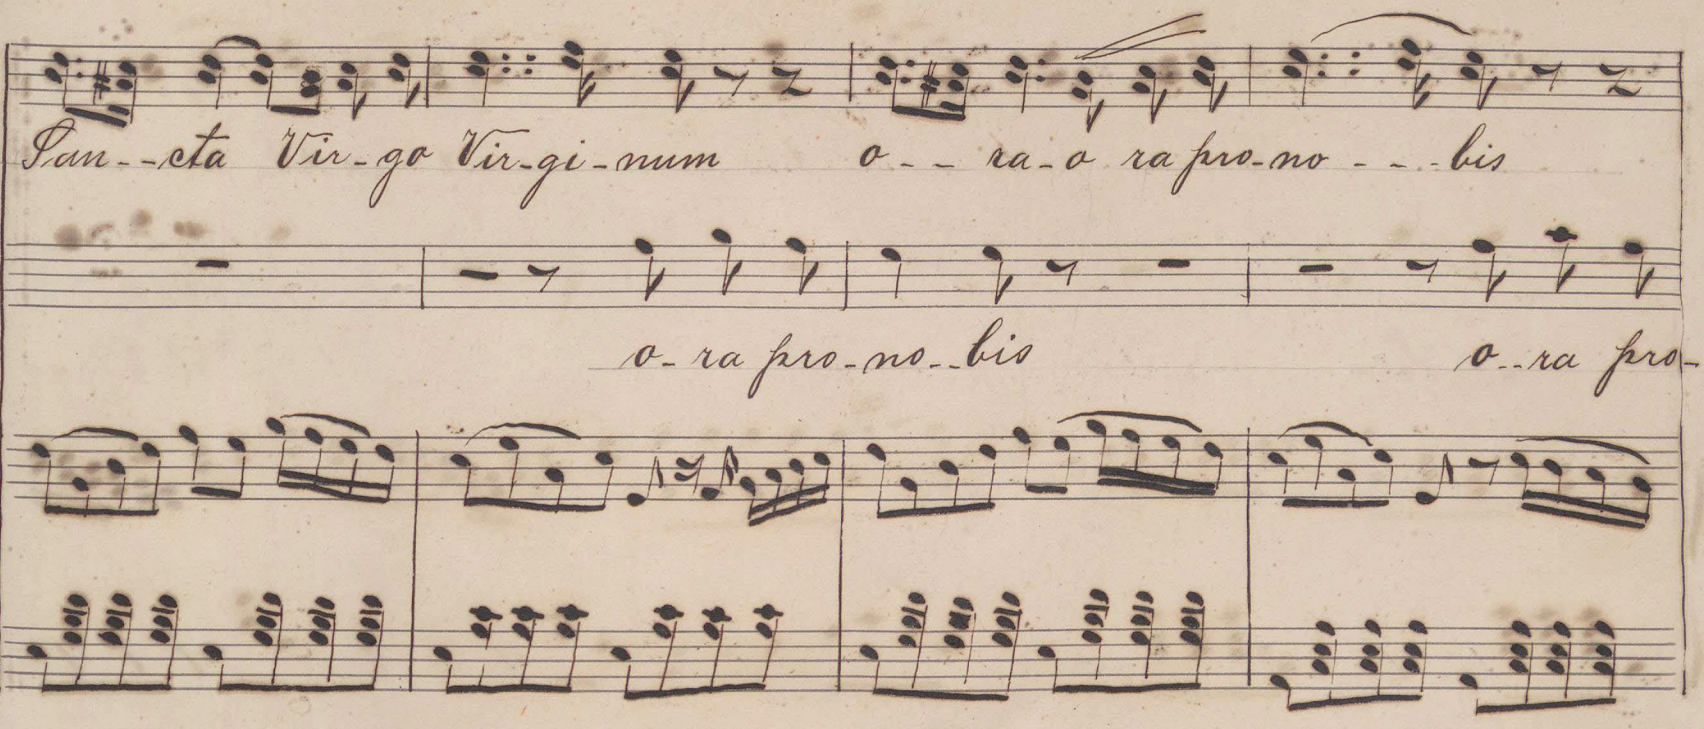 San--cta Vir-go Vir-gi-num o-- ra-o ra pro-no ---bis
o-ra pro-no--bis o--ra pro-